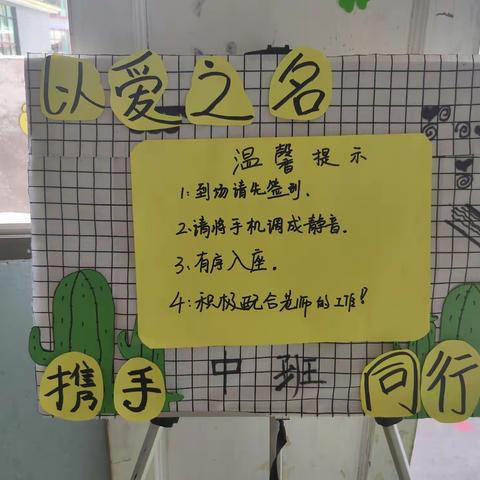 以爱之名
温馨提示
1:到场请先签到.
2:请将手机调成静音.
3:有序入座.
4:积极配合老师的工作!
携手 中班 同行